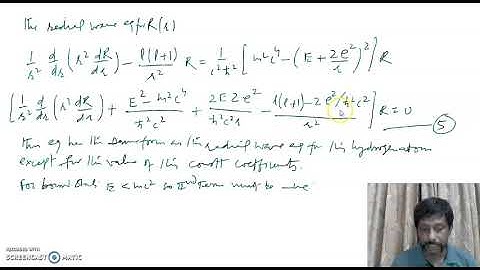 the radial wave eq for R(r)
1/r² d/dr (r² dR/dr) − l(l+1)/r² R = 1/c²ħ² [m²c⁴ − (E + Ze²/r)²] R
[1/r² d/dr (r² dR/dr) + E² − m²c⁴/ħ²c² + 2EZe²/ħ²c²r − l(l+1) − Ze²/ħ²c²/r²] R = 0 ⑤
this eq has the same form as the radial wave eq for the hydrogen atom
except for the value of the constt coefficients.
For bound states E < mc² so IInd term must be -ive
RECORDED WITH
SCREENCAST MATIC